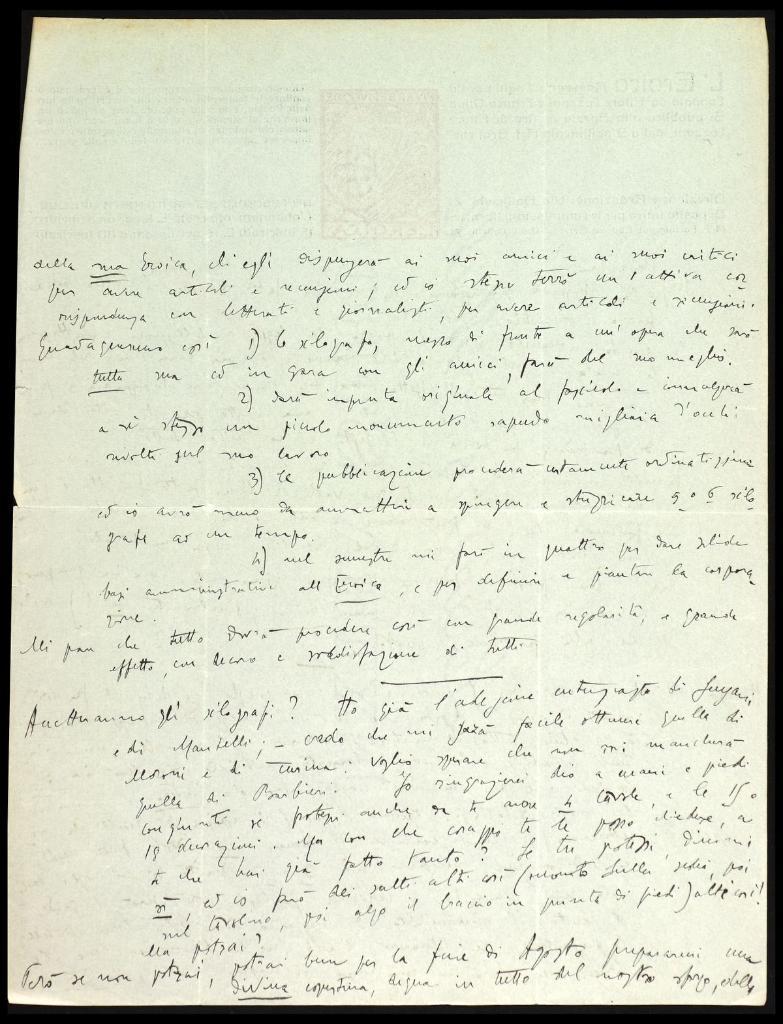 della sua Eroica, ch'egli dispenserà ai suoi amici e ai suoi critici
per avere articoli e recensioni; ed io stesso terrò un'attiva cor-
rispondenza con letterati e giornalisti, per avere articoli e recensioni.
Guadagneremo così 1) lo xilografo, messo di fronte a un'opera che sarà
tutta sua ed in gara con gli amici, farà del suo meglio.
2) darà impronta originale al fascicolo e innalzerà
a sé stesso un piccolo monumento sapendo migliaia d'occhi
rivolti sul suo lavoro
3) la pubblicazione procederà certamente ordinatissima
ed io avrò meno da ammattire a spingere e 5 o 6 xilo-
grafi ad un tempo.
4) nel semestre mi farò in quattro per dare solide
basi amministrative all'Eroica, e per definire e piantare la corpora-
zione.
Mi pare che tutto dovrà procedere così con grande regolarità, e grande
effetto, con decoro e soddisfazione di tutti.
Accetteranno gli xilografi? Ho già l'adesione entusiasta di
e di Mantelli; – credo che mi sarà facile ottenere quella di
Moroni e di : voglio sperare che non mi mancherà
quella di Barbieri. Io ringrazierei dio a mani e piedi
congiunti se potessi anche da te avere 4 tavole, e le 15 o
18 decorazioni. Ma con che coraggio te le posso chiedere, a
te che hai già fatto tanto? Se tu potessi, dimmi
sì, ed io farò dei salti alti così (monto sulla sedia, poi
sul tavolino, poi alzo il braccio in punta di piedi) alti così!
Ma potrai?
Però se non potrai, potrai bene per la fine di Agosto prepararmi una
divina copertina, degna in tutto del nostro sforzo, della